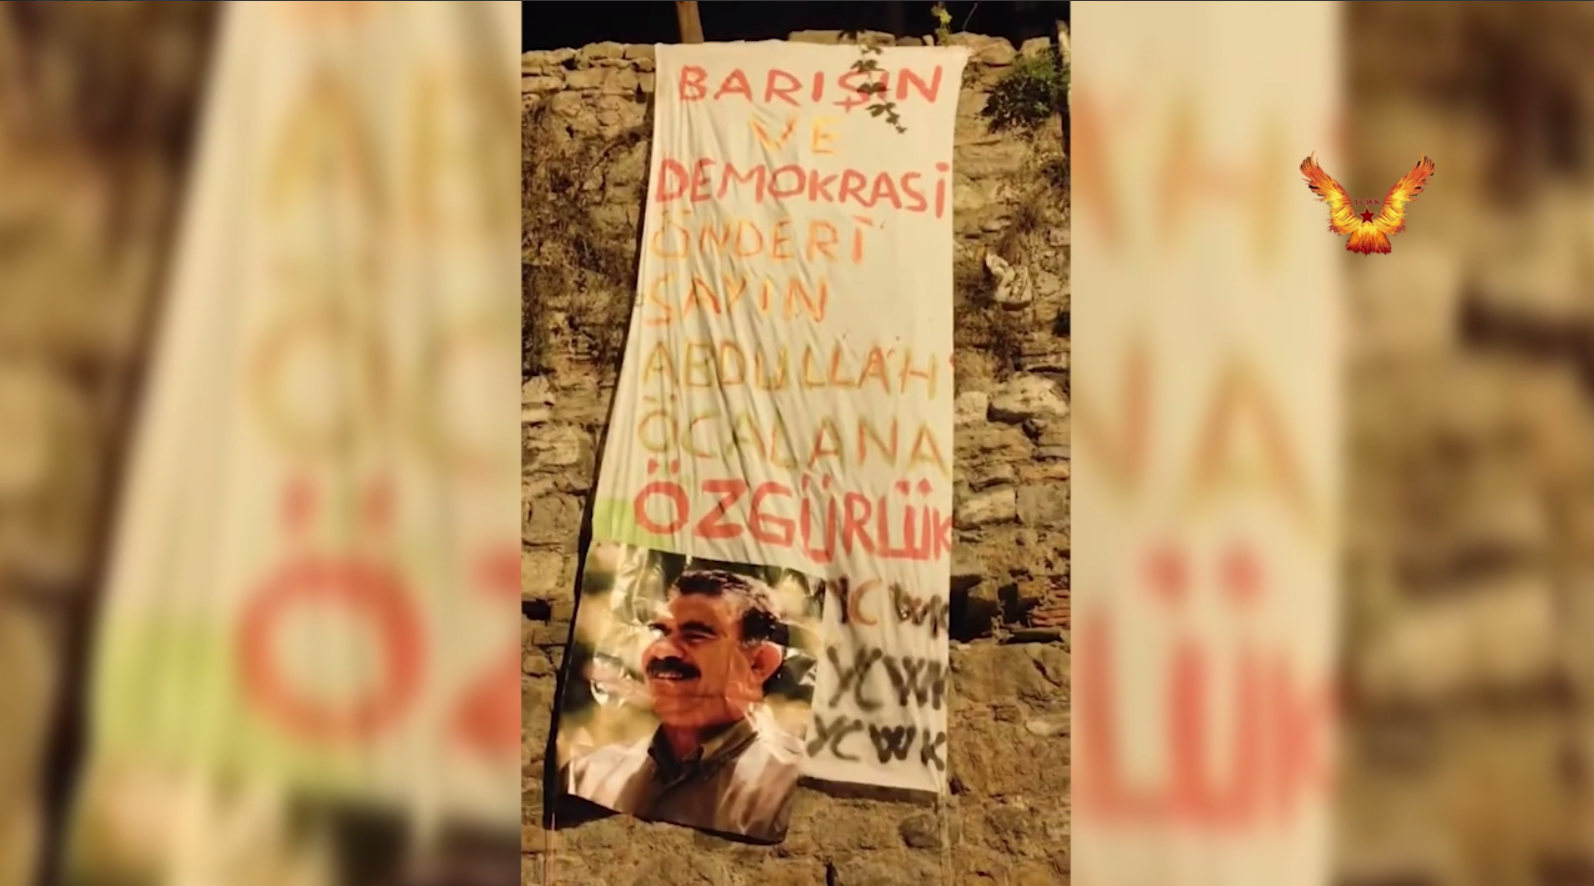 BARIŞIN
VE
DEMOKRASİ
ÖNDERİ
SAYIN
ABDULLAH
ÖCALANA
ÖZGÜRLÜK
YCWK
YCWK
YCWK